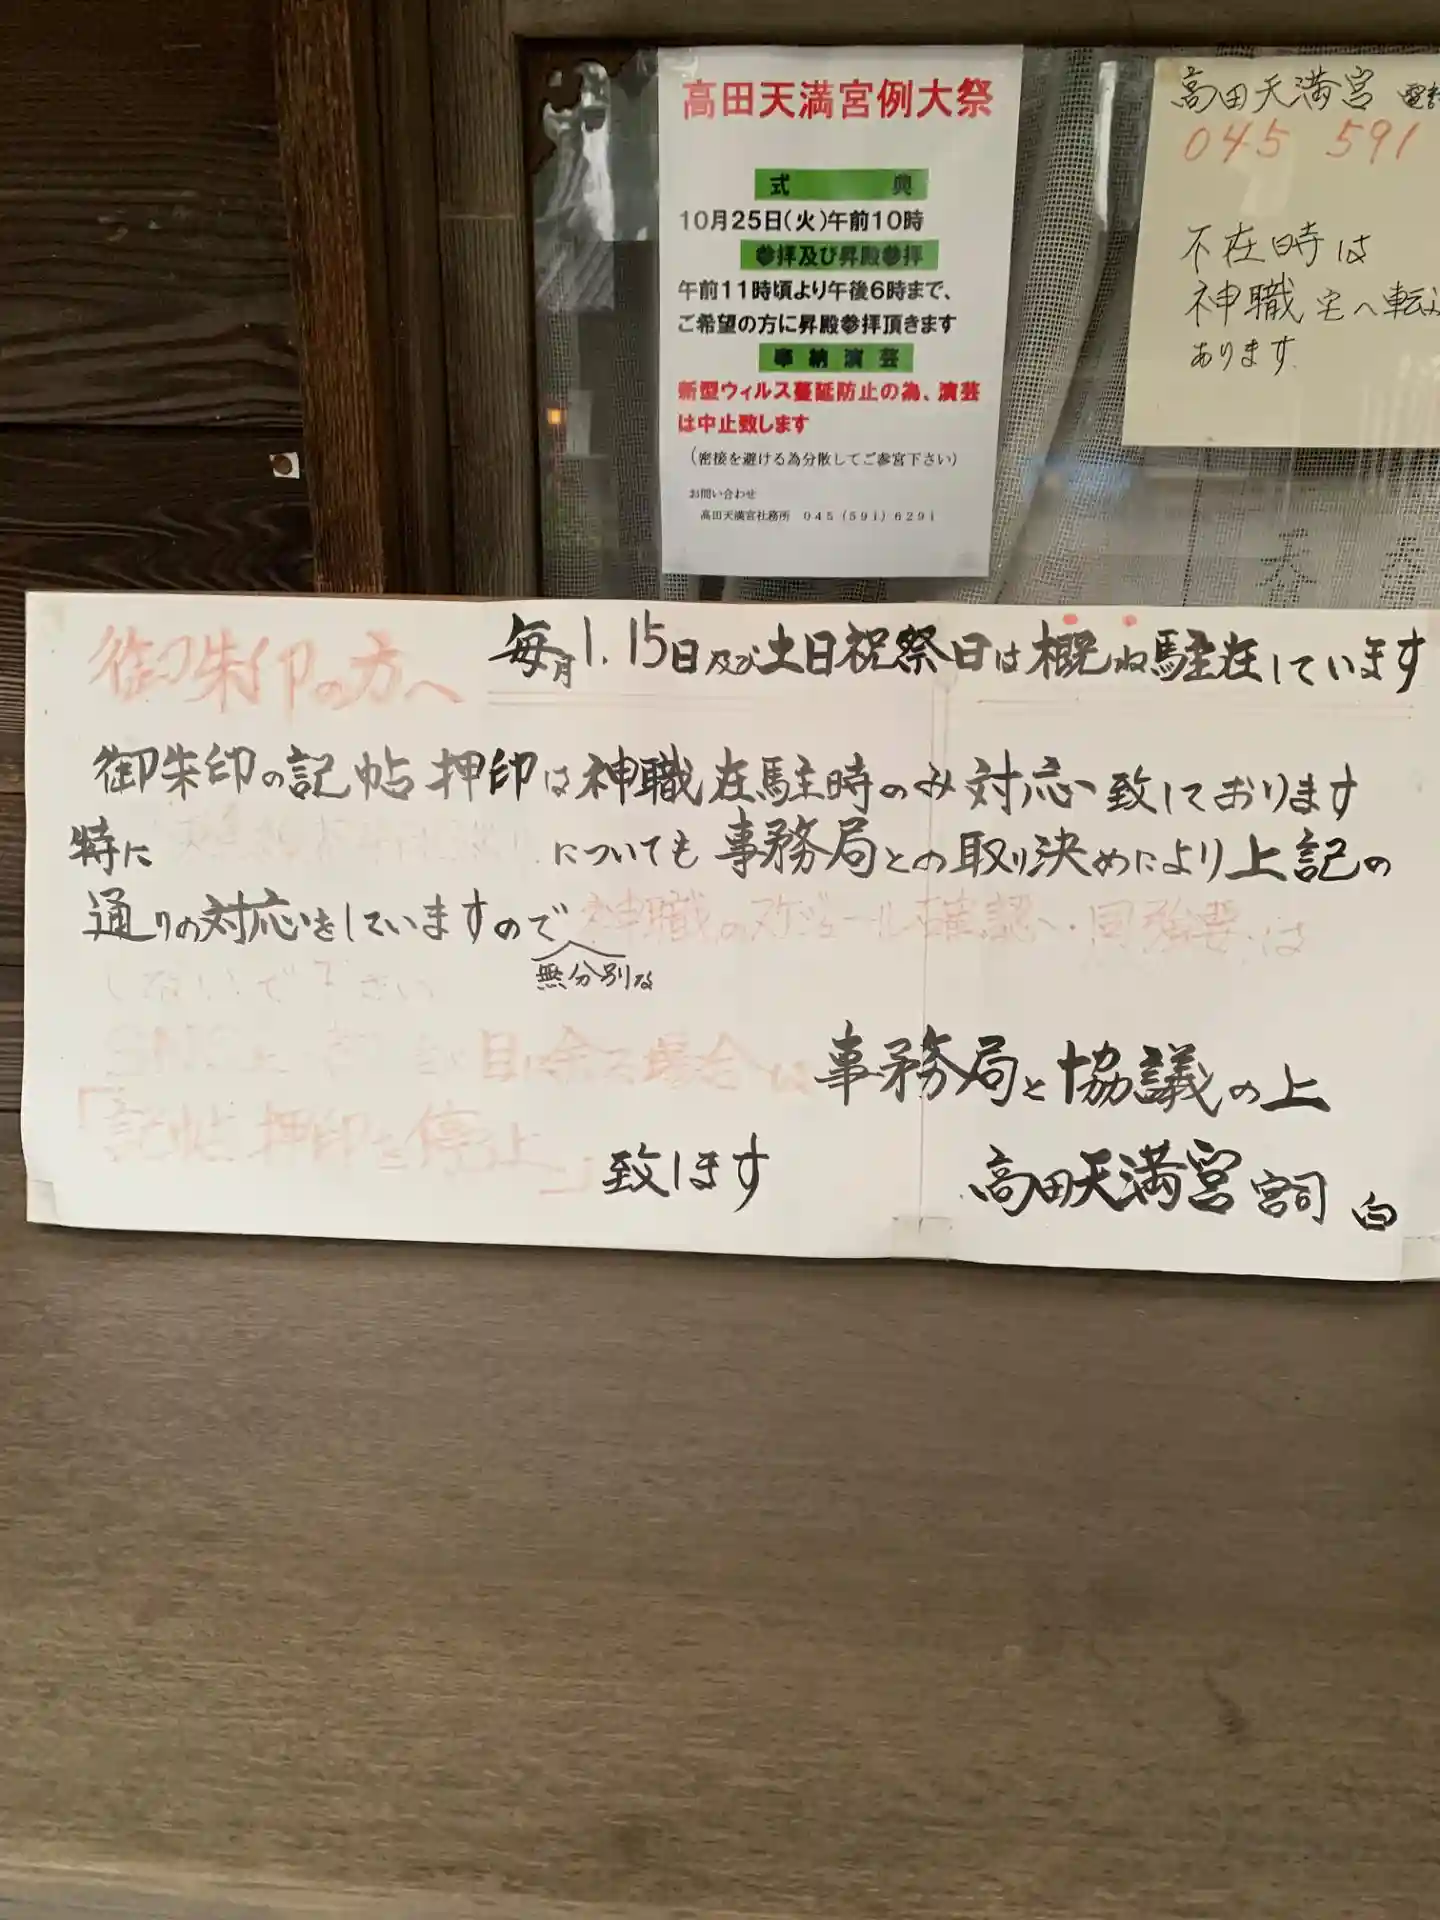 高田天満宮例大祭
式 典
10月25日(火)午前10時
参拝及び昇殿参拝
午前11時頃より午後6時まで、
ご希望の方に昇殿参拝頂きます
奉納演芸
新型ウィルス蔓延防止の為、演芸
は中止致します
(密接を避ける為分散してご参宮下さい)
お問い合わせ
高田天満宮社務所 045(591)6291
高田天満宮
045 591
不在時は
神職宅へ転
あります
御朱印の方へ 毎月1.15日及び土日祝祭日は概ね駐在しています
御朱印の記帖押印は神職在駐時のみ対応致しております
特に についても事務局との取り決めにより上記の
通りの対応をしていますので 神職のスケジュール確認へ
無分別な
しないで下さい
目に余る場合は 事務局と協議の上
「記帖押印を停止」致します 高田天満宮 宮司 白